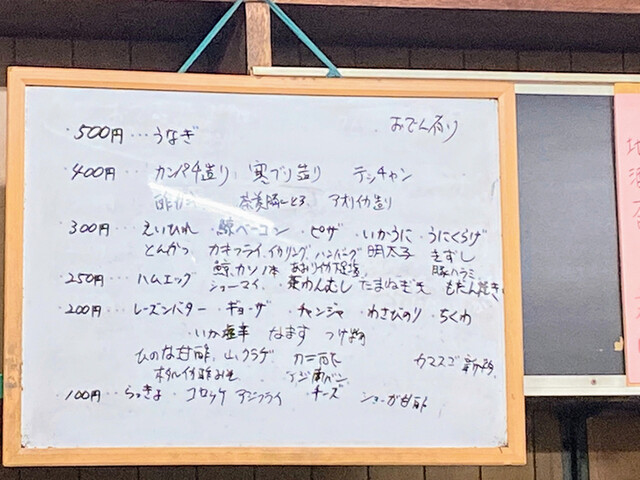 おでん有り
・500円…うなぎ
400円…カンパチ造り 寒ブリ造り テッチャン
アオリイカ造り
300円…えいひれ・鯨ベーコン・ピザ・いかうに・うにくらげ
とんかつ カキフライ イカリング ハンバーグ 明太子 きずし
鯨カツ 豚ハラミ
250円…ハムエッグ シューマイ・茶わんむし たまねぎ天 もだん焼き
200円…レーズンバター・ギョーザ・チャンジャ・わさびのり・ちくわ
・いか塩辛 なます つけ物
ひのな甘酢 山クラゲ カニ酢 カマスゴ
ホタルイカ酢みそ アジ南バン
100円…らっきょ・コロッケ アジフライ チーズ ショーガ甘酢